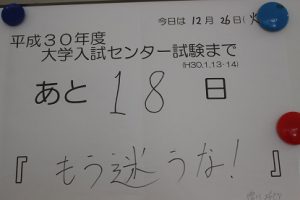 今日は12月26日(火
平成30年度
大学入試センター試験まで
(H30.1.13・14)
あと18日
『もう迷うな!』